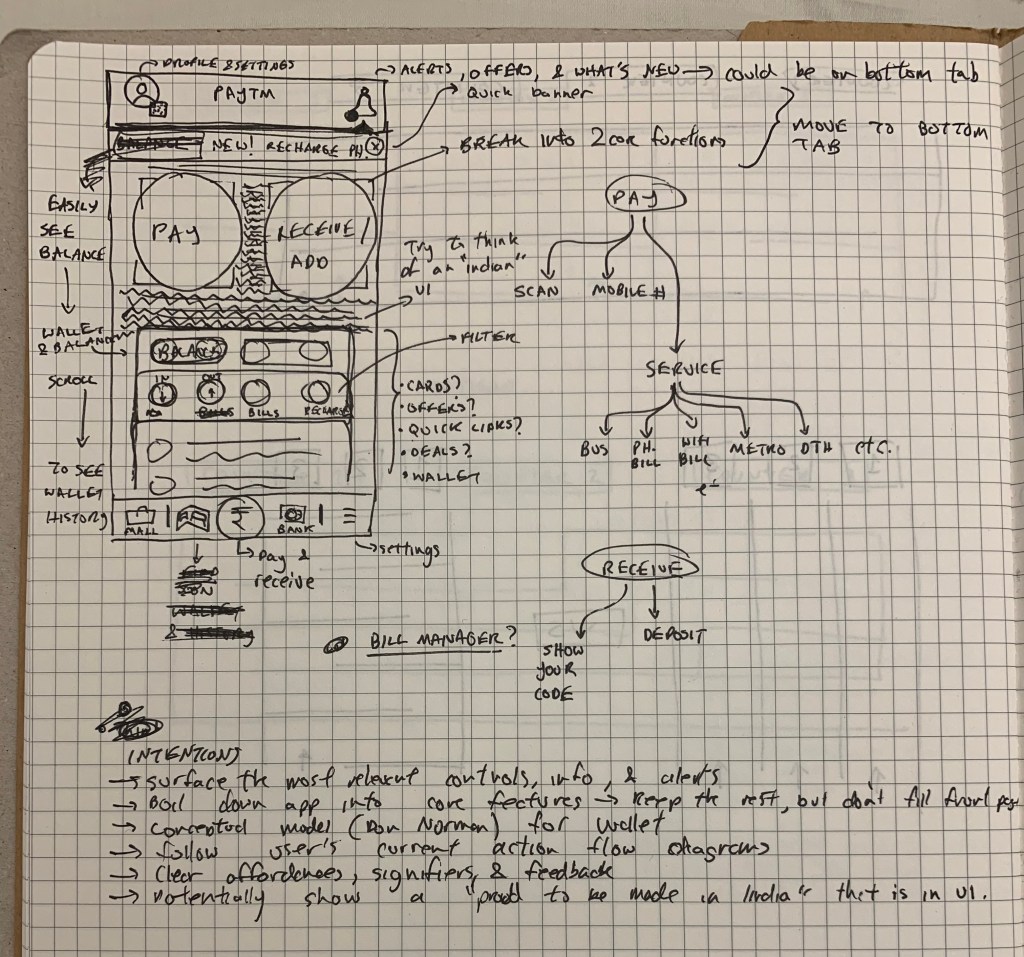 PROFILE & SETTINGS
ALERTS, OFFERS, & WHAT'S NEW → could be on bottom tab
Quick banner
PAYTM
MOVE TO BOTTOM
TAB
BALANCE NEW! RECHARGE PH. X
BREAK into 2 core functions
EASILY
SEE
BALANCE
PAY
RECEIVE/
ADD
Try to think
of an "indian"
UI
PAY
SCAN
MOBILE #
WALLET
& BALANCE
SCROLL
TO SEE
WALLET
HISTORY
BALANCE
FILTER
IN
OUT
BILLS
BILLS
RECHARGE
• CARDS?
• OFFERS?
• QUICK LINKS?
• DEALS?
• WALLET
SERVICE
BUS
PH.
BILL
WIFI
BILL
METRO
DTH
etc.
MALL
₹
BANK
settings
Pay &
receive
WALLET
& HISTORY
RECEIVE
SHOW
YOUR
CODE
DEPOSIT
BILL MANAGER?
INTENTIONS
→ surface the most relevant controls, info, & alerts
→ Boil down app into core features → keep the rest, but don't fill front page
→ conceptual model (Don Norman) for wallet
→ follow user's current action flow diagrams
→ Clear affordances, signifiers, & feedback
→ Potentially show a "proud to be made in India" that is in UI.